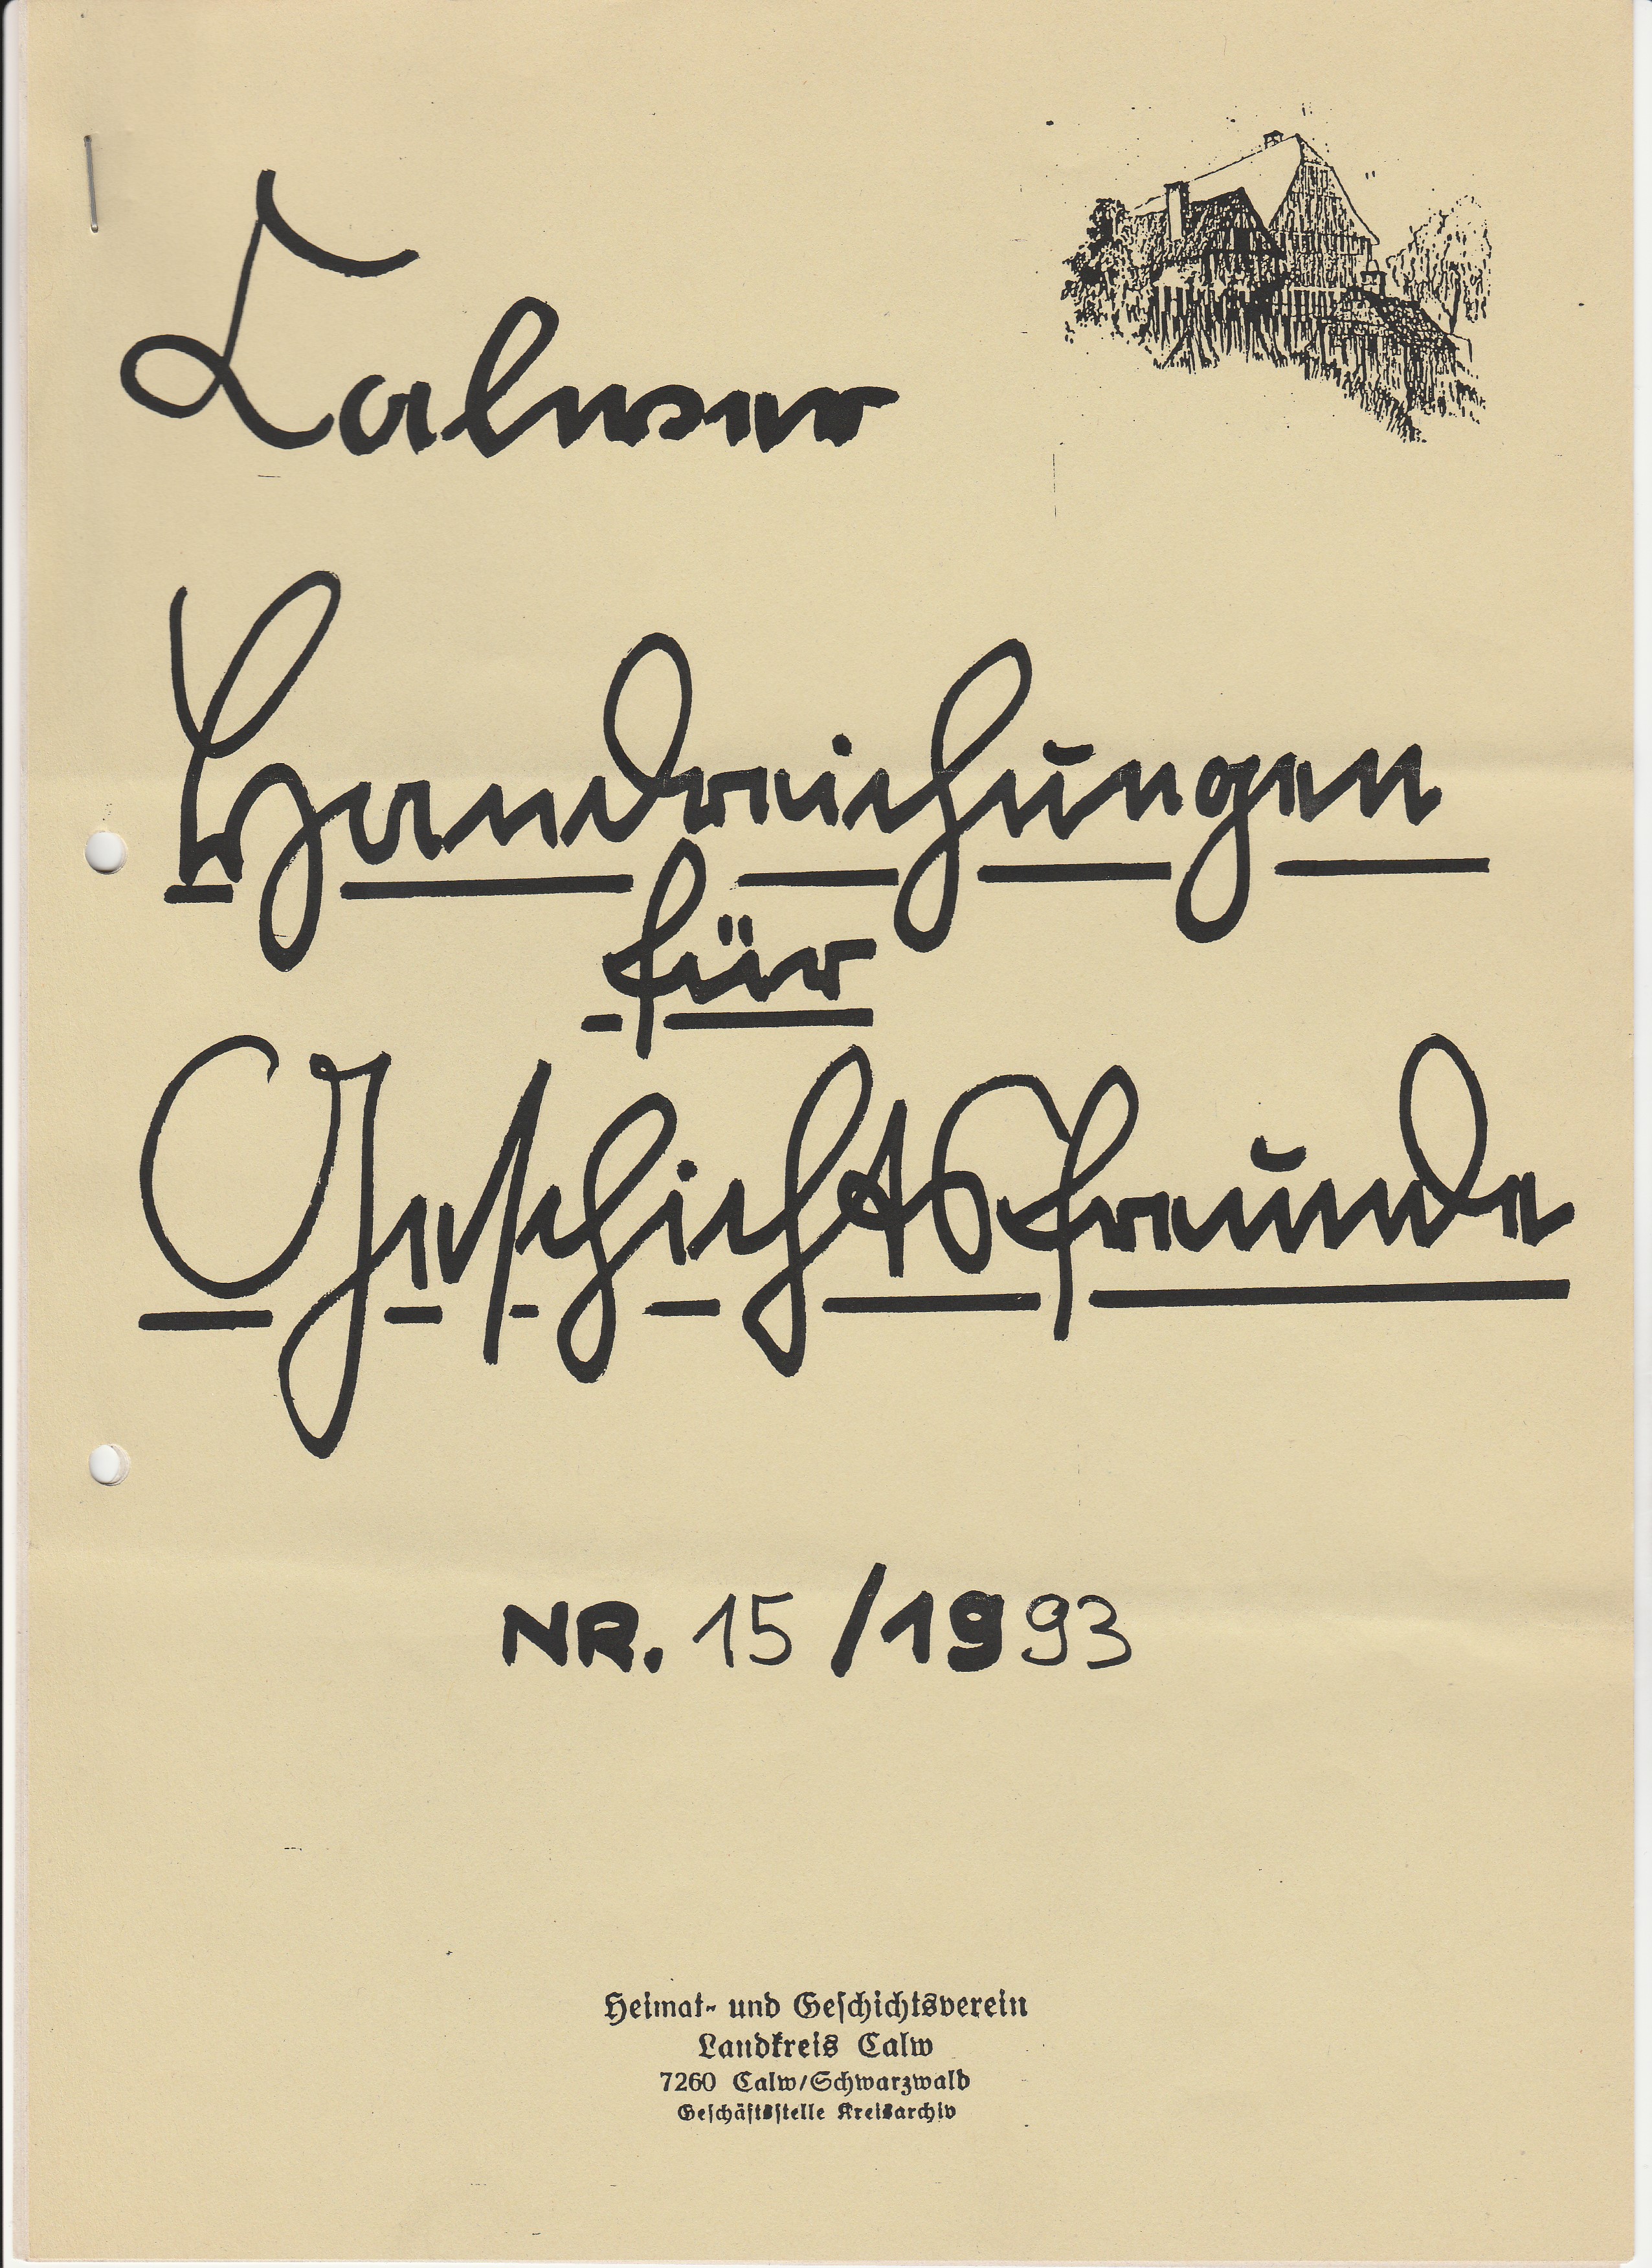 Calwer
Handreichungen
für
Geschichtsfreunde
NR. 15/1993
Heimat- und Geschichtsverein
Landkreis Calw
7260 Calw/Schwarzwald
Geschäftsstelle Kreisarchiv